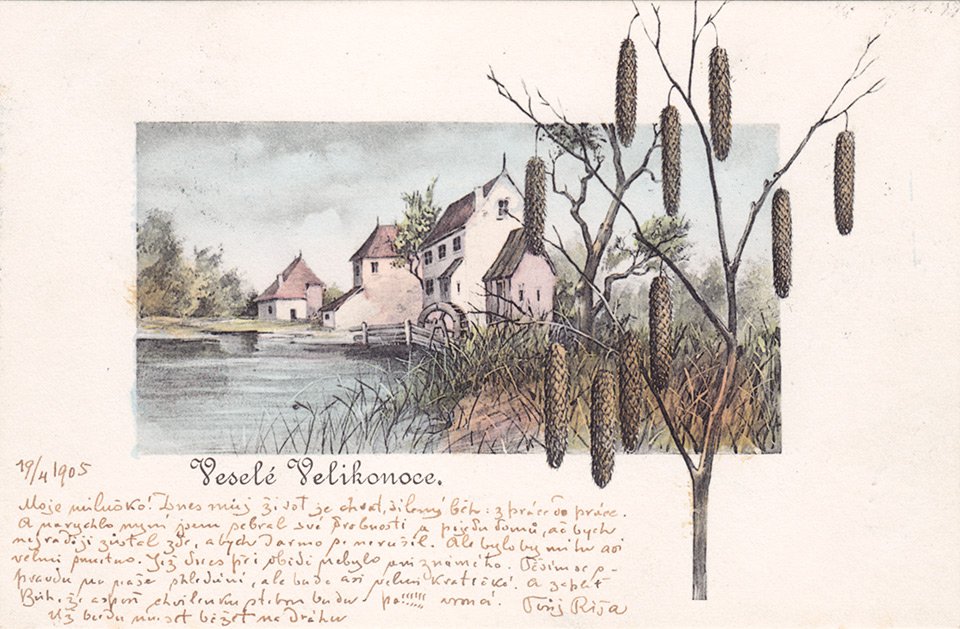 Veselé Velikonoce.
19/4 1905
Moje miluško! Dnes můj život je chvat, šílený běh: z práce do práce.
A narychlo nyní jsem sebral své drobnosti a pojedu domů, ač bych
nejraději zůstal zde, abych darmo nerušil. Ale bylo by mi tu asi
velmi smutno. Již dnes při obědě nebylo ani známého. Těším se o-
pravdu na naše shledání, ale bude asi velmi kratičké. A zaplať
Bůh, že aspoň chvilenku s tebou budu - pa!!!!! vroucí. Tvůj Ríša
Už budu muset běžet na dráhu